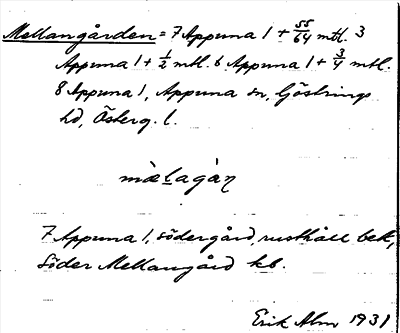 Mellangården = 7 Appuna 1 + 55/64 mtl. 3
Appuna 1 + 1/2 mtl. 6 Appuna 1 + 3/4 mtl.
8 Appuna 1, Appuna sn, Göstrings
hd, Österg. l.
mælagàɳ
7 Appuna 1, södergård, rusthåll bek,
söder Mellangård kb.
Erik Alm 1931